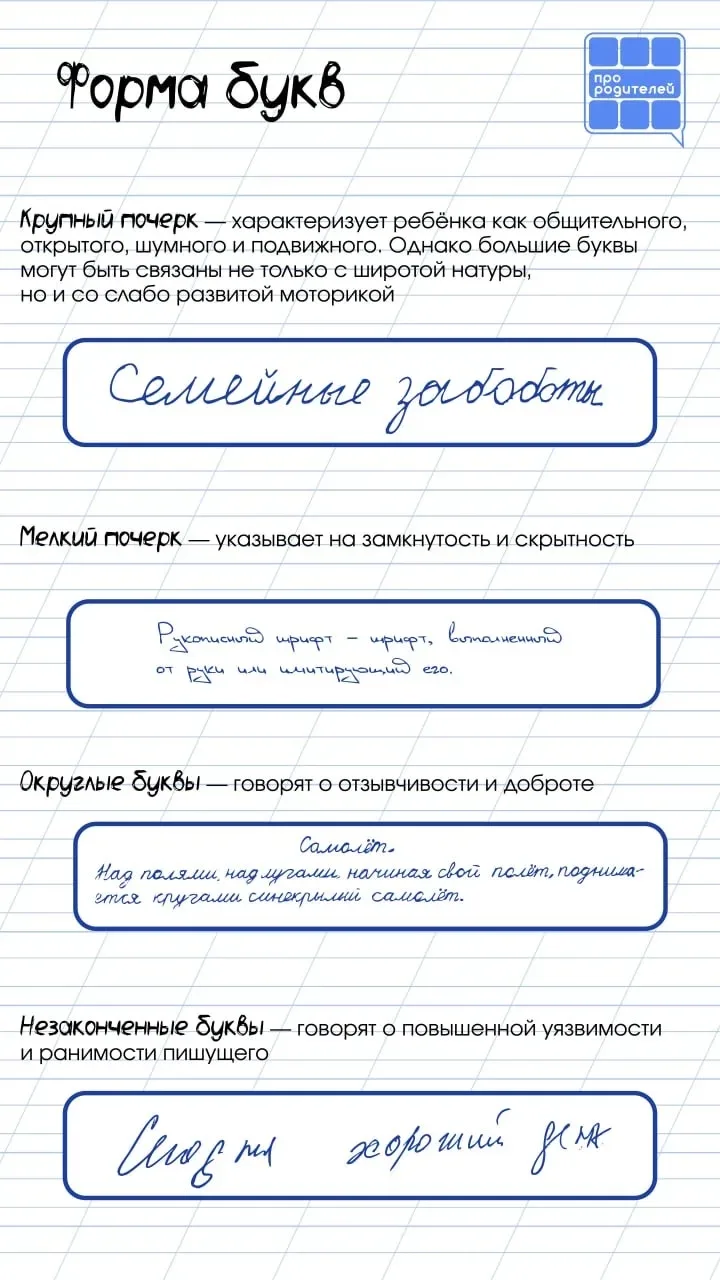 Форма букв
про
родителей
Крупный почерк — характеризует ребёнка как общительного,
открытого, шумного и подвижного. Однако большие буквы
могут быть связаны не только с широтой натуры,
но и со слабо развитой моторикой
Семейные забоботы
Мелкий почерк — указывает на замкнутость и скрытность
Рукописный шрифт – шрифт, выполненный
от руки или имитирующий его.
Округлые буквы — говорят о отзывчивости и доброте
Самолёт.
Над полями, над лугами начиная свой полёт, поднима-
ется кругами синекрылий самолёт.
Незаконченные буквы — говорят о повышенной уязвимости
и ранимости пишущего
хороший день